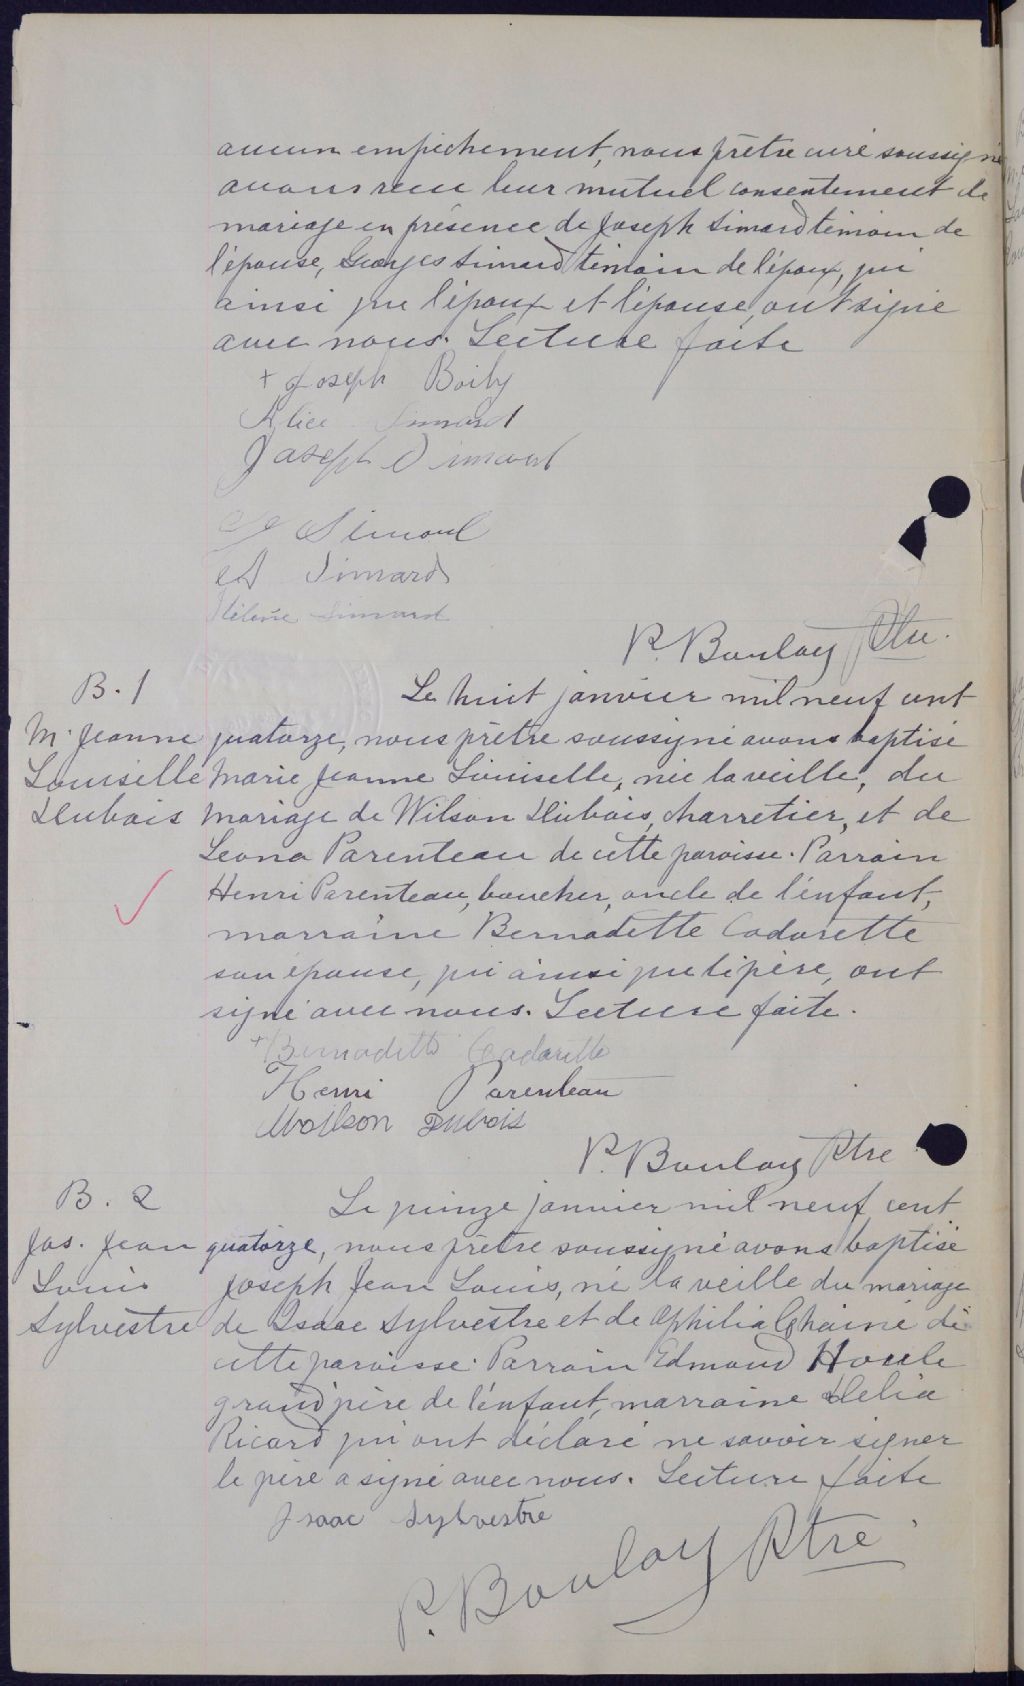 aucun empêchement, nous prêtre curé soussigné
avons reçu leur mutuel consentement de
mariage en présence de Joseph Simard témoin de
l'épouse, Georges Simard témoin de l'époux, qui
ainsi que l'époux et l'épouse, ont signé
avec nous. Lecture faite
+ Joseph Boily
Alice Simard
Joseph Simard
Simard
Simard
Hélène Simard
P. Boulay Ptre.
B. 1
M. Jeanne
Louiselle
Dubois
Le huit janvier mil neuf cent
quatorze, nous prêtre soussigné avons baptisé
Marie Jeanne Louiselle, née la veille, du
mariage de Wilson Dubois, charretier, et de
Leona Parenteau de cette paroisse. Parrain
Henri Parenteau, boucher, oncle de l'enfant,
marraine Bernadette Cadorette
son épouse, qui ainsi que le père, ont
signé avec nous. Lecture faite.
+ Bernadette Cadorette
Henri Parenteau
Wollson Dubois
P. Boulay Ptre
B. 2
Jos. Jean
Louis
Sylvestre
Le quinze janvier mil neuf cent
quatorze, nous prêtre soussigné avons baptisé
Joseph Jean Louis, né la veille du mariage
de Isaac Sylvestre et de Ophilia Chainé de
cette paroisse. Parrain Edmond Houle
grand'père de l'enfant, marraine Delia
Ricard qui ont déclaré ne savoir signer
le père a signé avec nous. Lecture faite
Isaac Sylvestre
P. Boulay Ptre